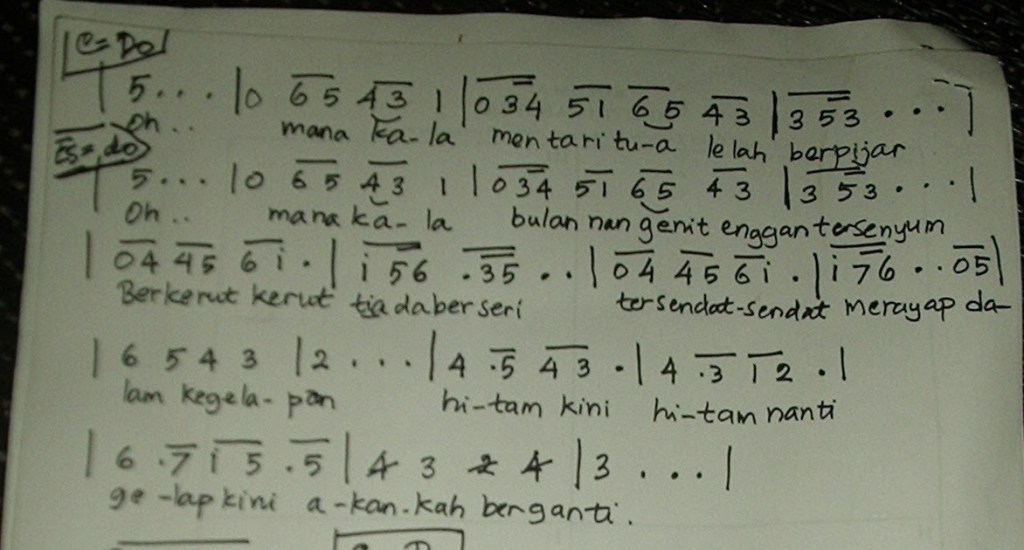 C = Do
| 5 . . . | 0 6 5 4 3 1 | 0 3 4 5 1 6 5 4 3 | 3 5 3 . . . |
Oh . . mana ka - la mentari tu - a lelah berpijar
Es = do
| 5 . . . | 0 6 5 4 3 1 | 0 3 4 5 1 6 5 4 3 | 3 5 3 . . . |
Oh . . mana ka - la bulan nan genit enggan tersenyum
| 0 4 4 5 6 i . | i 5 6 . 3 5 . . | 0 4 4 5 6 i . | i 7 6 . . 0 5 |
Berkerut kerut tiada berseri tersendat-sendat merayap da-
| 6 5 4 3 | 2 . . . | 4 . 5 4 3 . | 4 . 3 1 2 . |
lam kegela - pan hi - tam kini hi - tam nanti
| 6 . 7 i 5 . 5 | 4 3 2 4 | 3 . . . |
ge - lap kini a - kan - kah berganti .